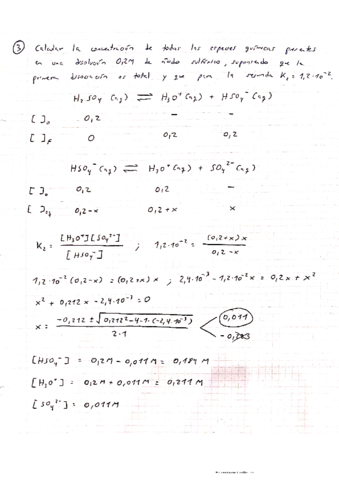 ③ Calcular la concentración de todas las especies químicas presentes
en una disolución 0,2M de ácido sulfúrico, suponiendo que la
primera disociación es total y que para la segunda K₂ = 1,2·10⁻².
H₂SO₄ (aq) ⇌ H₃O⁺(aq) + HSO₄⁻(aq)
[ ]₀ 0,2 – –
[ ]F 0 0,2 0,2
HSO₄⁻(aq) ⇌ H₃O⁺(aq) + SO₄²⁻(aq)
[ ]₀ 0,2 0,2 –
[ ] 0,2-x 0,2+x x
K₂ = [H₃O⁺][SO₄²⁻] / [HSO₄⁻] ; 1,2·10⁻² = (0,2+x)x / 0,2-x
1,2·10⁻²(0,2-x) = (0,2+x)x ; 2,4·10⁻³ - 1,2·10⁻²x = 0,2x + x²
x² + 0,212x - 2,4·10⁻³ = 0
x = -0,212 ± √0,212² - 4·1·(-2,4·10⁻³) / 2·1
0,011
[HSO₄⁻] = 0,2M - 0,011M = 0,189M
[H₃O⁺] = 0,2M + 0,011M = 0,211M
[SO₄²⁻] = 0,011M